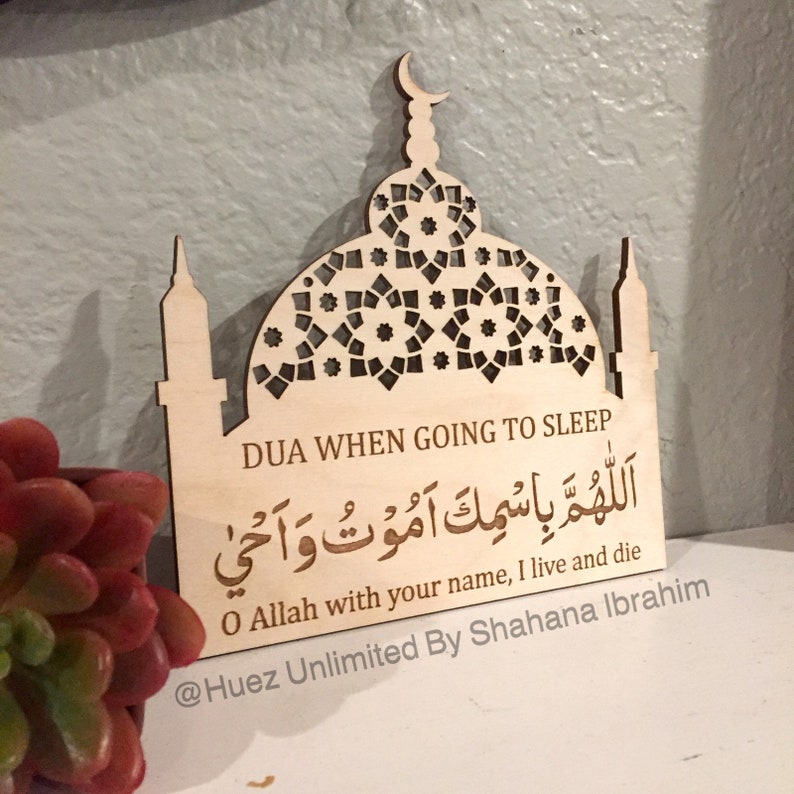 DUA WHEN GOING TO SLEEP
اَللّٰهُمَّ بِاسْمِكَ اَمُوْتُ وَ اَحْيٰي
O Allah with your name, I live and die
@Huez Unlimited By Shahana Ibrahim